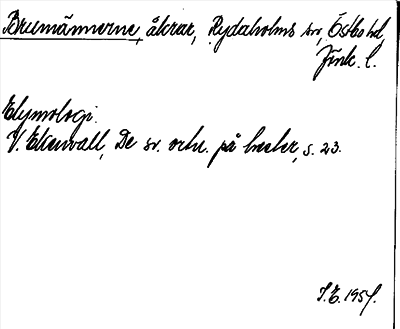 Brumännerne, åkrar, Rydaholms sn, Östbo hd,
Jönk. l.
Etymologi.
V. Ekenvall, De sv. ortn. på hester, s. 23.
I.E. 1954.